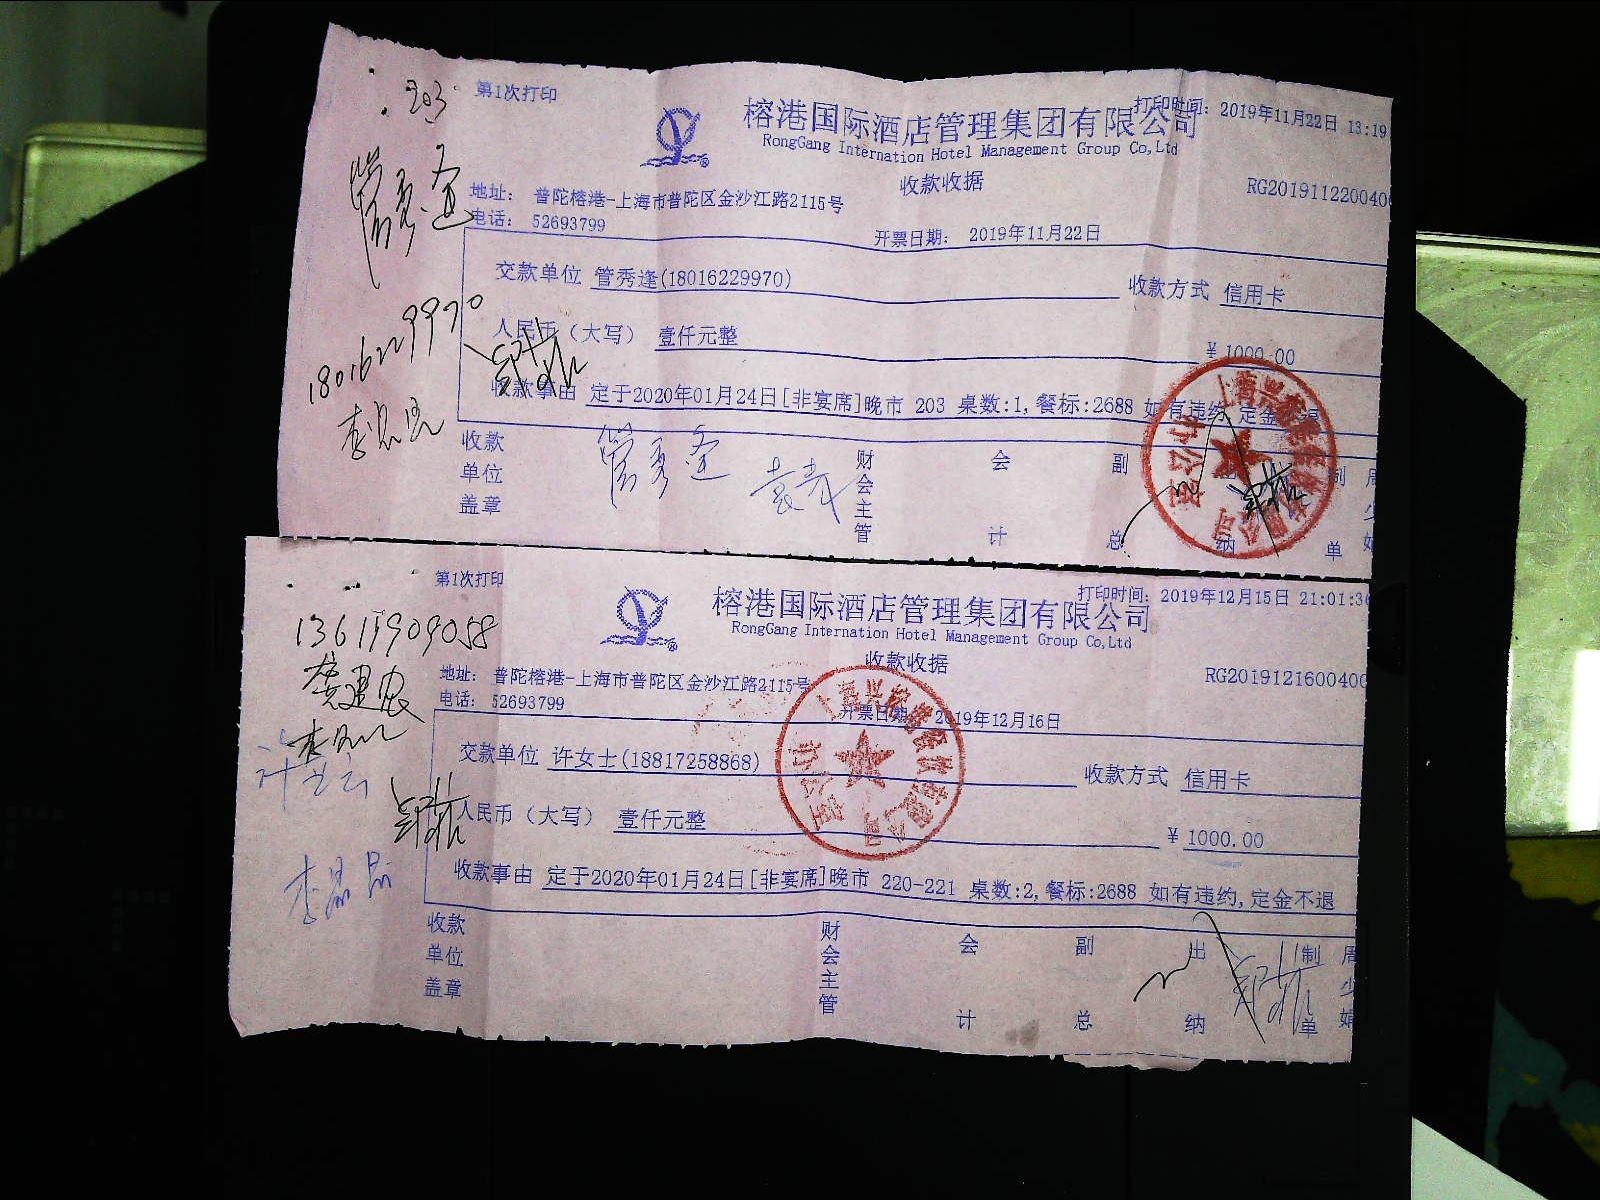 203
第1次打印
打印时间: 2019年11月22日 13:19
榕港国际酒店管理集团有限公司
RongGang Internation Hotel Management Group Co,Ltd
收款收据
RG2019112200400
地址: 普陀榕港-上海市普陀区金沙江路2115号
电话: 52693799
开票日期: 2019年11月22日
管秀逢
交款单位 管秀逢(18016229970)
收款方式 信用卡
人民币（大写） 壹仟元整
¥ 1000.00
18016229970
收款事由 定于2020年01月24日[非宴席]晚市 203 桌数:1,餐标:2688 如有违约,定金不退
收款单位盖章
管秀逢
财会主管
会计
副总
出纳
制单
周少娟
第1次打印
打印时间: 2019年12月15日 21:01:36
榕港国际酒店管理集团有限公司
RongGang Internation Hotel Management Group Co,Ltd
收款收据
RG2019121600400
13611909058
地址: 普陀榕港-上海市普陀区金沙江路2115号
电话: 52693799
开票日期: 2019年12月16日
交款单位 许女士(18817258868)
收款方式 信用卡
人民币（大写） 壹仟元整
¥ 1000.00
收款事由 定于2020年01月24日[非宴席]晚市 220-221 桌数:2,餐标:2688 如有违约,定金不退
收款单位盖章
财会主管
会计
副总
出纳
制单
周少娟